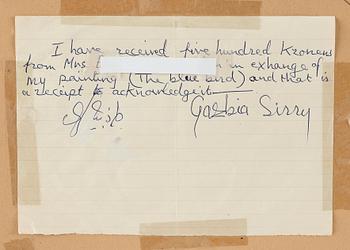 I have received five hundred Kroners
from Mrs in exhange of
my painting (The blue bird) and that is
a receipt to acknowledge it
Gazbia Sirry